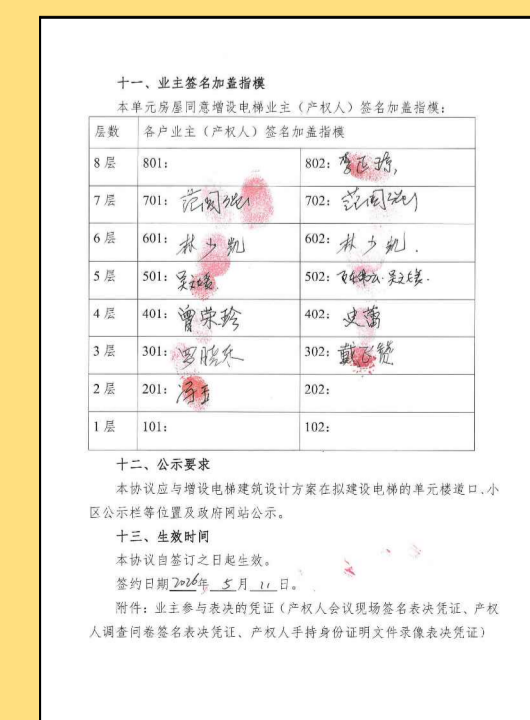 十一、业主签名加盖指模
本单元房屋同意增设电梯业主（产权人）签名加盖指模：
层数 各户业主（产权人）签名加盖指模
8层 801: 802:
7层 701: 702:
6层 601: 林少凯 602: 林少凯.
5层 501: 502:
4层 401: 曾荣珍 402: 史蕾
3层 301: 罗晓东 302:
2层 201: 202:
1层 101: 102:
十二、公示要求
本协议应与增设电梯建筑设计方案在拟建设电梯的单元楼道口、小
区公示栏等位置及政府网站公示。
十三、生效时间
本协议自签订之日起生效。
签约日期2026年 5月 11日。
附件：业主参与表决的凭证（产权人会议现场签名表决凭证、产权
人调查问卷签名表决凭证、产权人手持身份证明文件录像表决凭证）